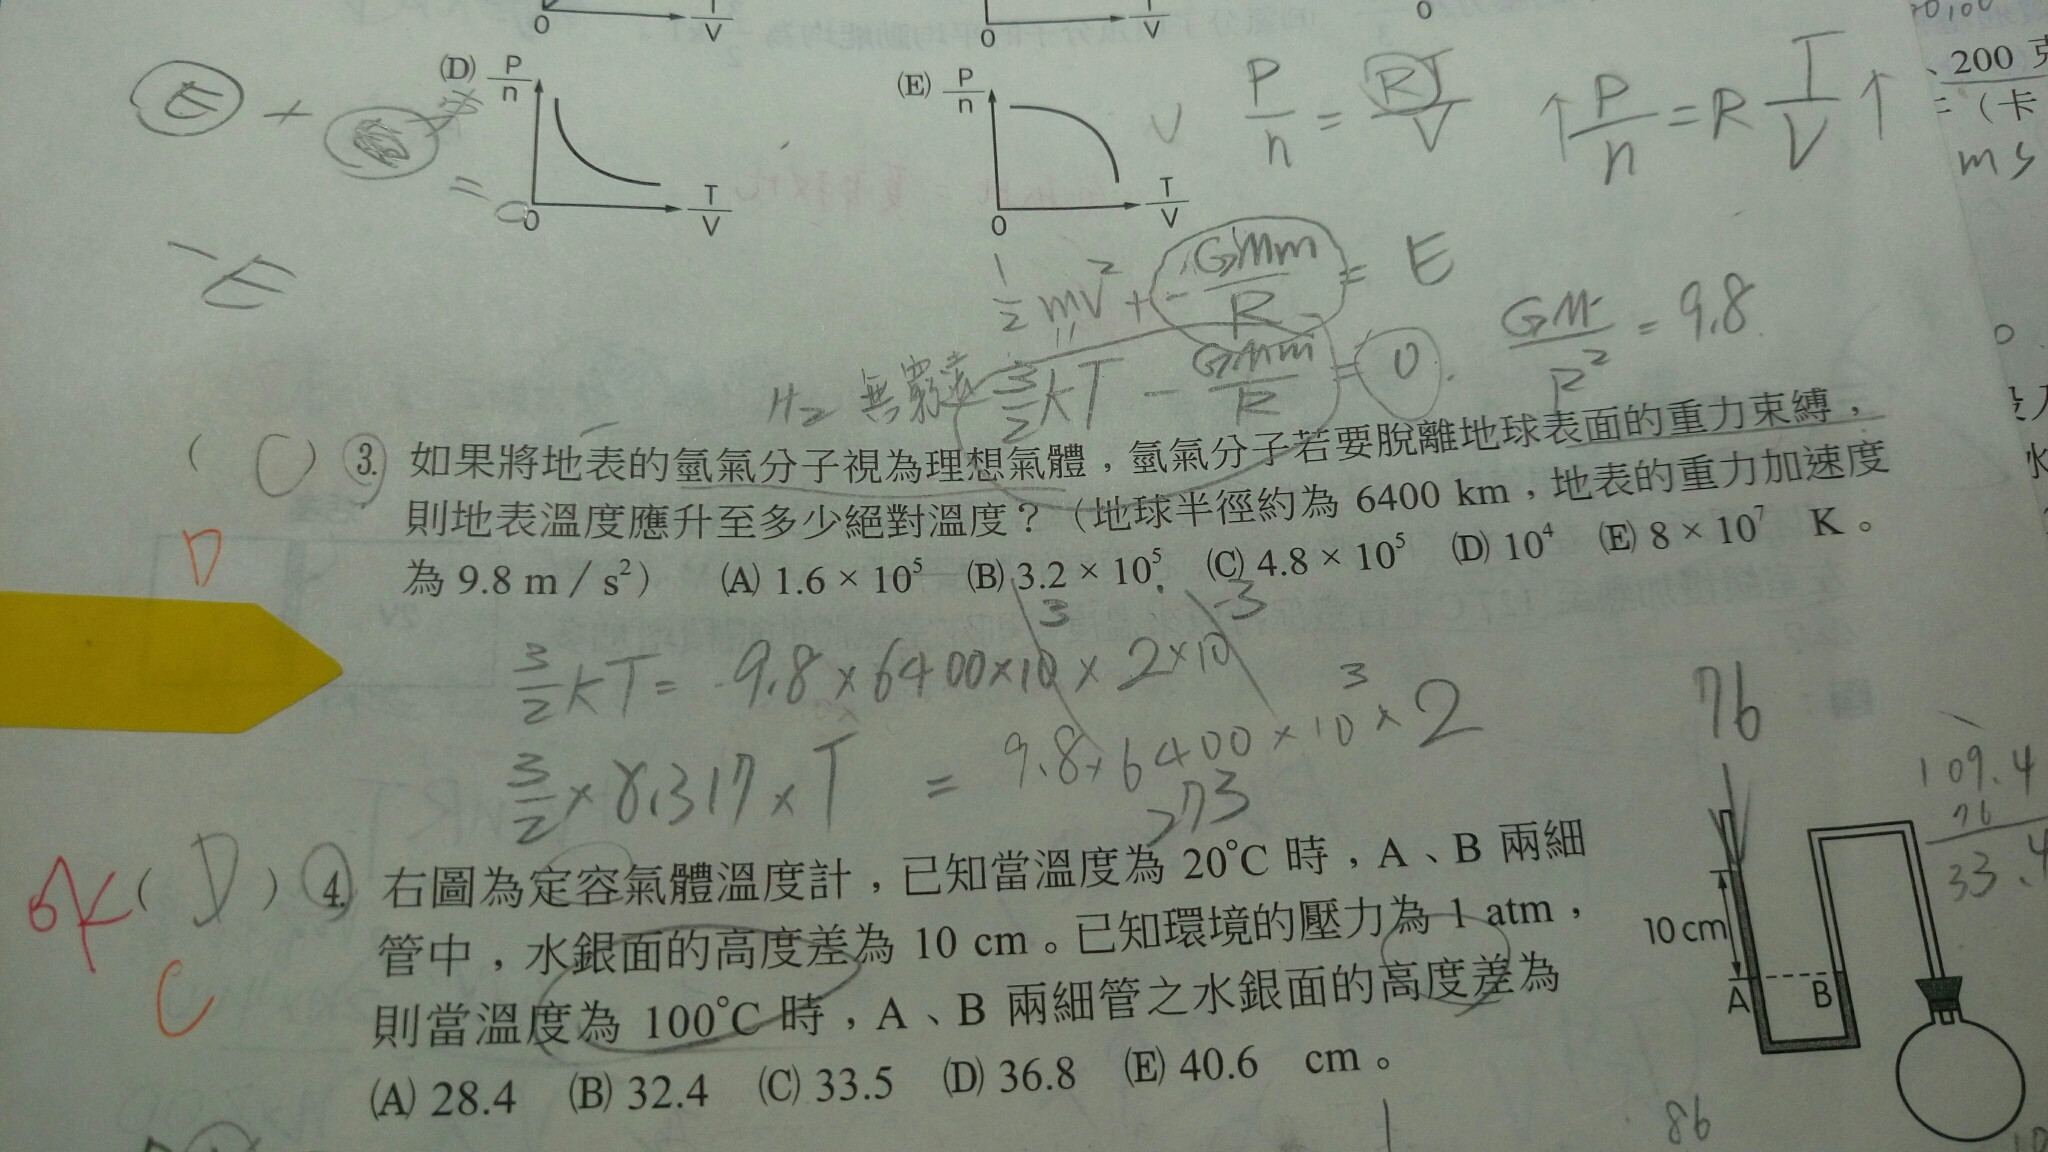 T/V
0
T/V
0
0
200
(D) P/n
0
T/V
(E) P/n
0
T/V
P/n = RT/V
↑ P/n = R T/V ↑
(卡
ms
E
+
= 0
-E
1/2 mv² + - GMm/R = E
GM/R² = 9.8
H₂ 無窮遠 3/2 kT - GMm/R = 0
( C ) 3. 如果將地表的氫氣分子視為理想氣體，氫氣分子若要脫離地球表面的重力束縛，
則地表溫度應升至多少絕對溫度？（地球半徑約為 6400 km，地表的重力加速度
D
為 9.8 m / s²） (A) 1.6 × 10⁵ (B) 3.2 × 10⁵ (C) 4.8 × 10⁵ (D) 10⁴ (E) 8 × 10⁷ K。
3/2 kT = 9.8 × 6400 × 10³ × 2 × 10⁻³
3/2 × 8.317 × T = 9.8 × 6400 × 10³ × 2
273
76
109.4
76
33.4
( D ) 4. 右圖為定容氣體溫度計，已知當溫度為 20°C 時，A、B 兩細
管中，水銀面的高度差為 10 cm。已知環境的壓力為 1 atm，
C
則當溫度為 100°C 時，A、B 兩細管之水銀面的高度差為
(A) 28.4 (B) 32.4 (C) 33.5 (D) 36.8 (E) 40.6 cm。
10 cm
A
B
86